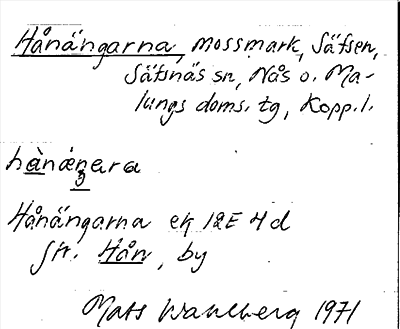 Hånängarna, mossmark, Säfsen,
Säfsnäs sn, Nås o. Ma-
lungs doms. tg, Kopp. l.
hànáŋara
Hånängarna ek 12E 4d
jfr. Hån, by
Mats Wahlberg 1971